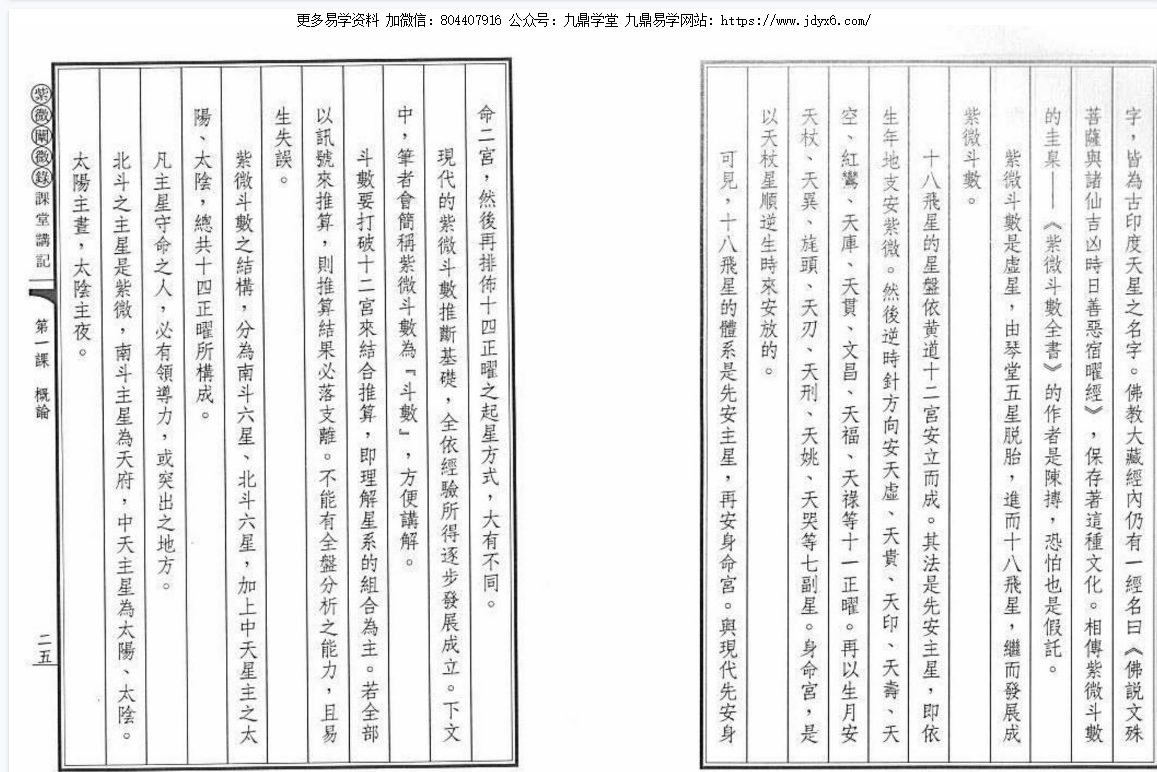 更多易学资料 加微信：804407916 公众号：九鼎学堂 九鼎易学网站：https://www.jdyx6.com/
字，皆為古印度天星之名字。佛教大藏經內仍有一經名曰《佛説文殊
菩薩與諸仙吉凶時日善惡宿曜經》，保存著這種文化。相傳紫微斗數
的圭臬——《紫微斗數全書》的作者是陳摶，恐怕也是假託。
紫微斗數是虛星，由琴堂五星脱胎，進而十八飛星，繼而發展成
紫微斗數。
十八飛星的星盤依黃道十二宮安立而成。其法是先安主星，即依
生年地支安紫微。然後逆時針方向安天虛、天貴、天印、天壽、天
空、紅鸞、天庫、天貫、文昌、天福、天祿等十一正曜。再以生月安
天杖、天異、旄頭、天刃、天刑、天姚、天哭等七副星。身命宮，是
以天杖星順逆生時來安放的。
可見，十八飛星的體系是先安主星，再安身命宮。與現代先安身
命二宮，然後再排佈十四正曜之起星方式，大有不同。
現代的紫微斗數推斷基礎，全依經驗所得逐步發展成立。下文
中，筆者會簡稱紫微斗數為『斗數』，方便講解。
斗數要打破十二宮來結合推算，即理解星系的組合為主。若全部
以訊號來推算，則推算結果必落支離。不能有全盤分析之能力，且易
生失誤。
紫微斗數之結構，分為南斗六星、北斗六星，加上中天星主之太
陽、太陰，總共十四正曜所構成。
凡主星守命之人，必有領導力，或突出之地方。
北斗之主星是紫微，南斗主星為天府，中天主星為太陽、太陰。
太陽主晝，太陰主夜。
紫微闡微錄 課堂講記 第一課 概論 二五